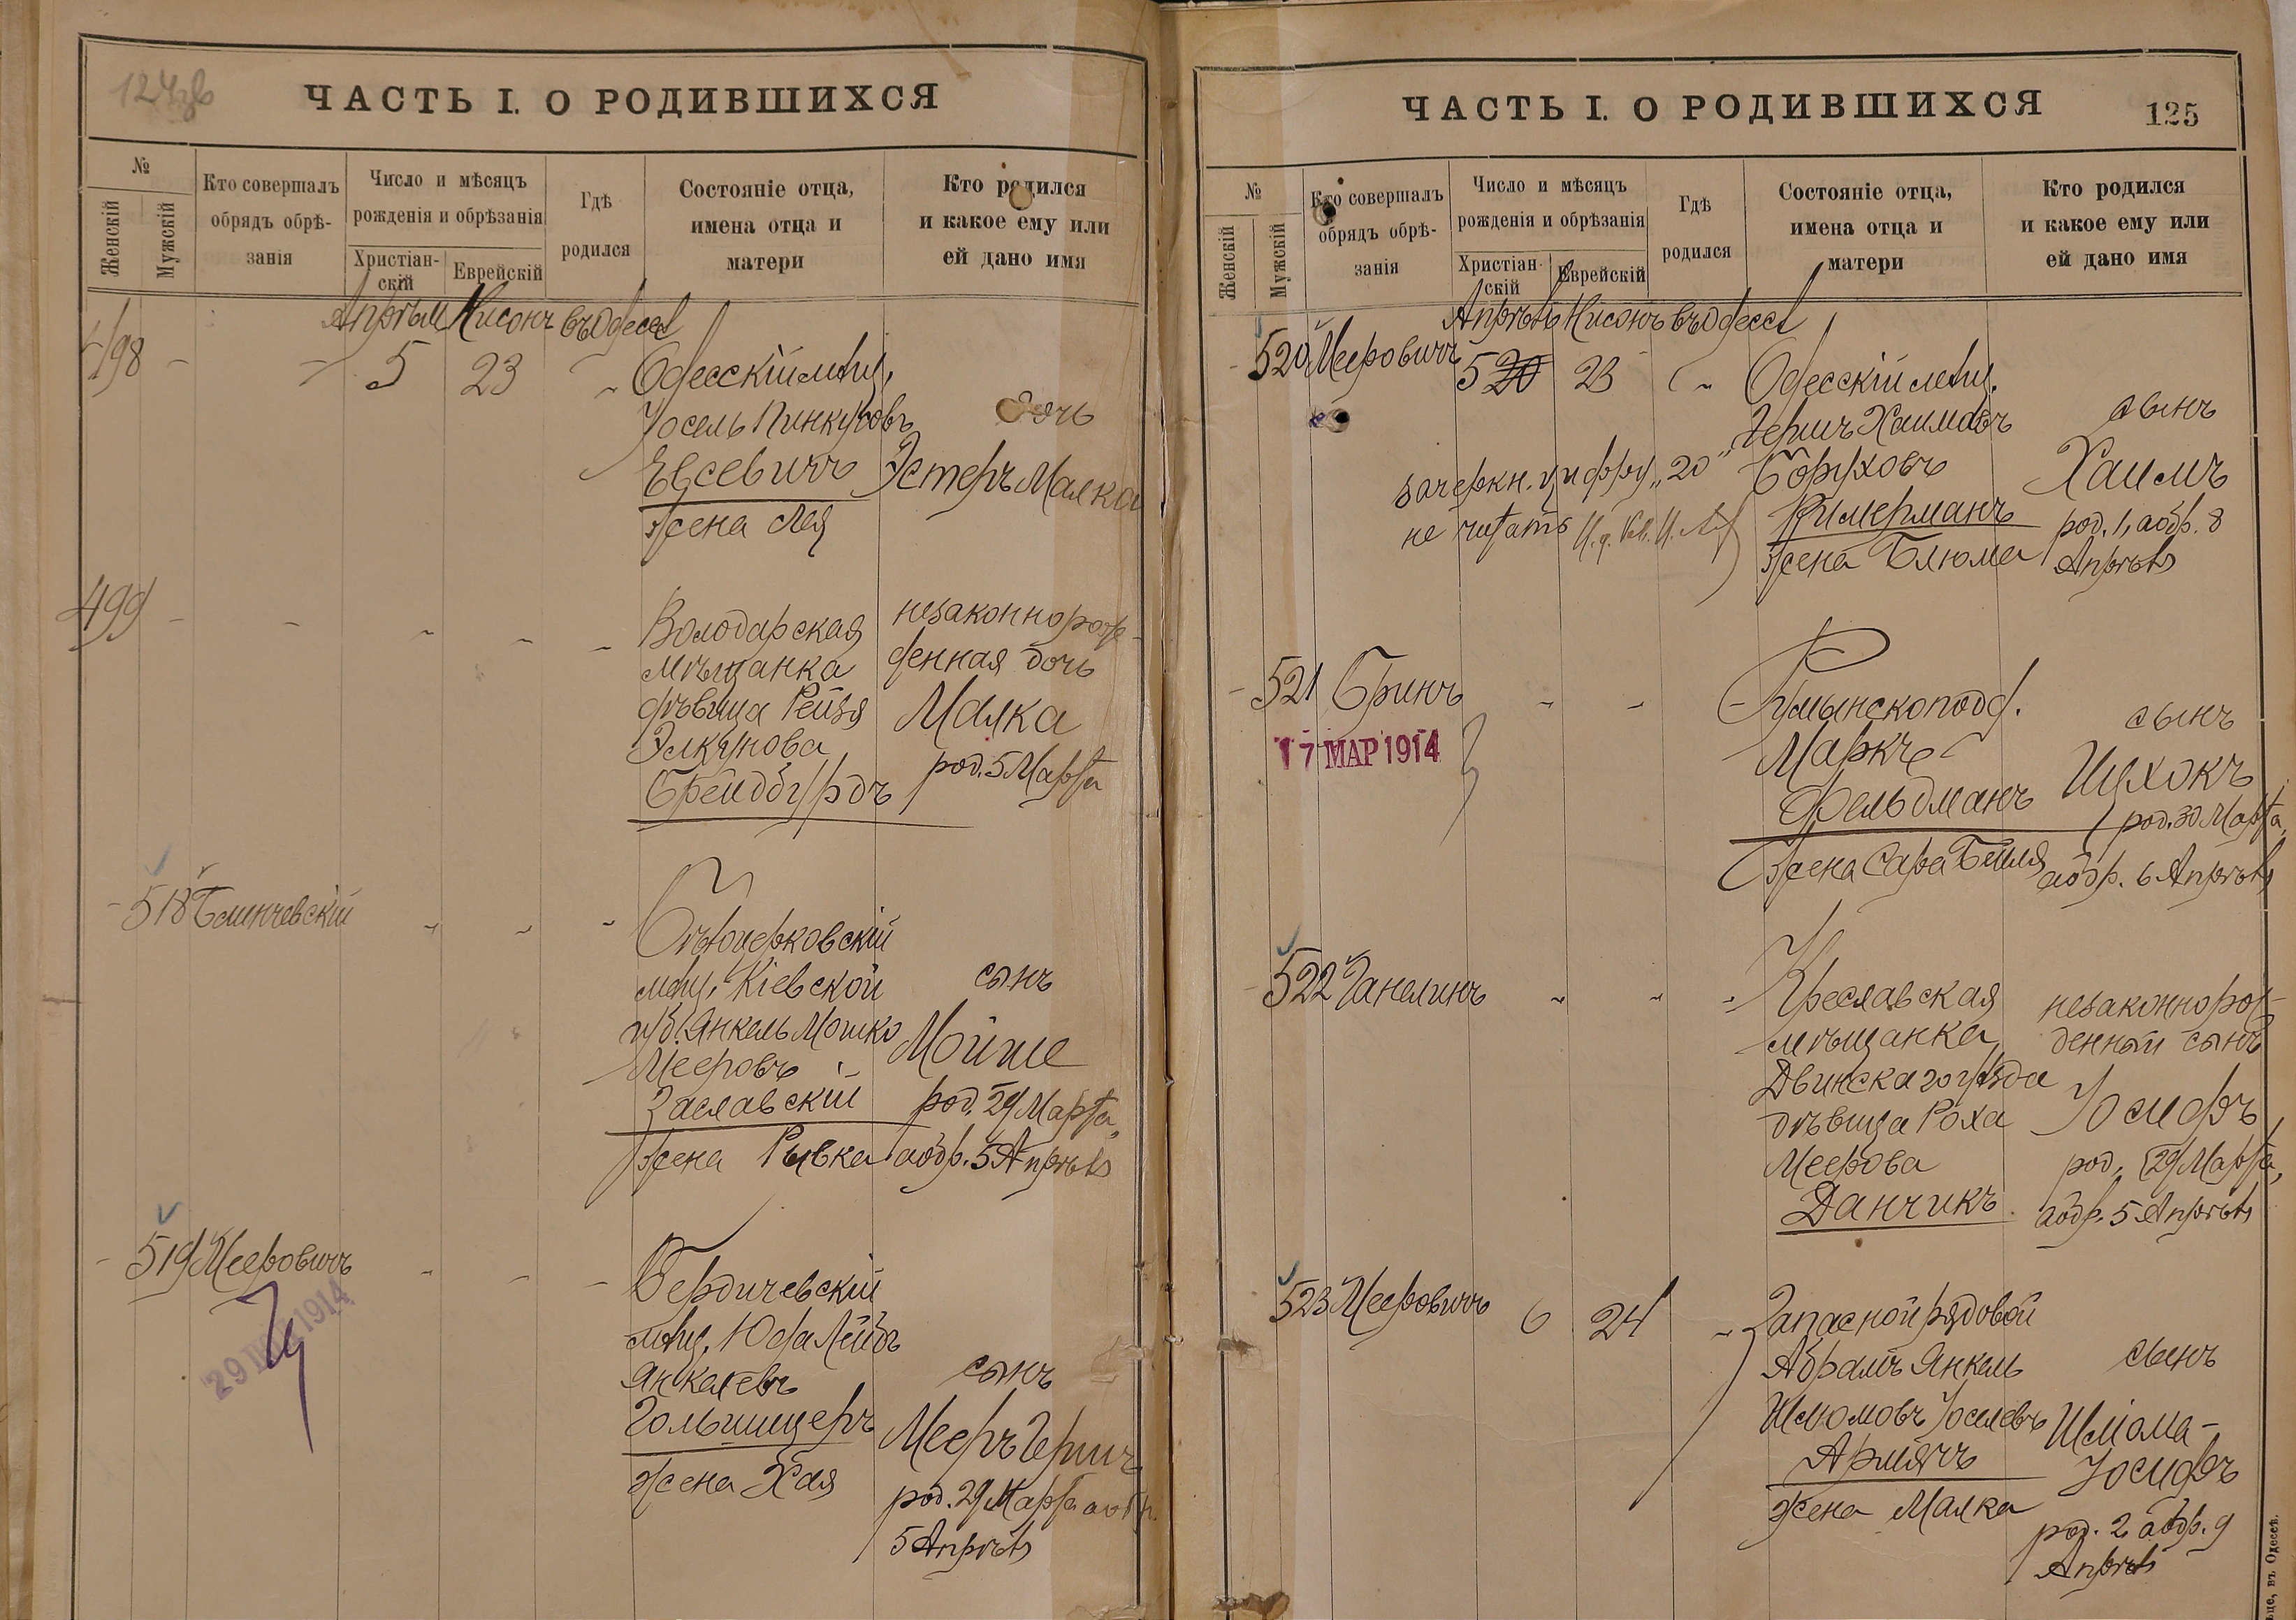 ЧАСТЬ I. О РОДИВШИХСЯ
№
Женскій
Мужскій
Кто совершалъ
обрядъ обрѣ-
занія
Число и мѣсяцъ
рожденія и обрѣзанія
Христіан-
скій
Еврейскій
Гдѣ
родился
Состояніе отца,
имена отца и
матери
Кто родился
и какое ему или
ей дано имя
Апрѣль Нисонъ въ Одессѣ
498 - - 5 23 "
Одесскій мѣщ.
Іосель Пинкусовъ
Евсевичъ
жена Лея
дочь
Эстеръ Малка
499 - - " " "
Володарская
мѣщанка
дѣвица Рейзя
Элкунова
незаконнорож-
денная дочь
Малка
род. 5 Марта
- 518 " " "
мѣщ. Кіевской
губ. Янкель Мошко
Мееровъ
Заславскій
жена Рывка
сынъ
Мойше
род. 29 Марта,
а обр. 5 Апрѣля
- 519 Мееровичъ " " "
29 1914
Бердичевскій
мѣщ. Юда Лейбъ
Янкелевъ
жена Хая
сынъ
Мееръ Гершъ
род. 29 Марта а обр.
5 Апрѣля
ЧАСТЬ I. О РОДИВШИХСЯ
125
№
Женскій
Мужскій
Кто совершалъ
обрядъ обрѣ-
занія
Число и мѣсяцъ
рожденія и обрѣзанія
Христіан-
скій
Еврейскій
Гдѣ
родился
Состояніе отца,
имена отца и
матери
Кто родился
и какое ему или
ей дано имя
Апрѣль Нисонъ въ Одессѣ
- 520 Мееровичъ 5 20 23 "
зачеркн. цифру „20"
не читать
Одесскій мѣщ.
Гершъ Хаимовъ
Боруховъ
жена Блюма
сынъ
Хаимъ
род. 1, а обр. 8
Апрѣля
- 521 Бринъ - - -
17 МАР 1914
Румынскопод.
Маркъ
Фельдманъ
жена Сара Бейля
сынъ
Ицхокъ
род. 30 Марта,
а обр. 6 Апрѣля
- 522 Ганелинъ " " "
Креславская
мѣщанка
Двинскаго уѣзда
дѣвица Роха
Меерова
Данчикъ
незаконнорож-
денный сынъ
Іосифъ
род. 29 Марта,
а обр. 5 Апрѣля
523 Мееровичъ 6 24 "
Запасной рядовой
Абрамъ Янкель
Шлюмовъ Іоселевъ
жена Малка
сынъ
Шліома-
Іосифъ
род. 2 а обр. 9
Апрѣля
въ Одессѣ.